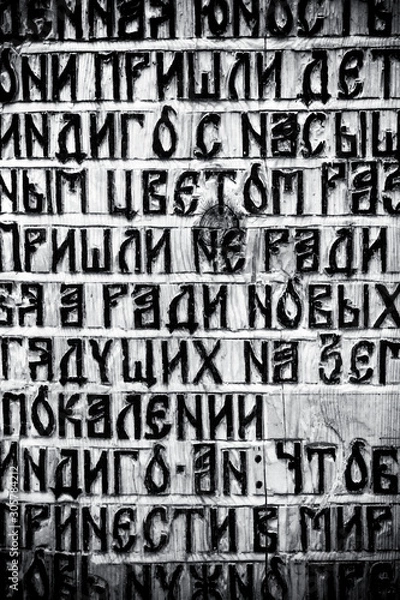 ЦЕННАЯ ЮНОСТЬ
ОНИ ПРИШЛИ ДЕТ
ИНДИГО С НАСЫЩ
НЫМ ЦВЕТОМ РАЗ
ПРИШЛИ НЕ РАДИ
ВА А РАДИ НОВЫХ
ГАДУЩИХ НА ЗЕМ
ПОКАЛЕНИИ
ИНДИГО-АН: ЧТОБ
РИНЕСТИ В МИР
ОВЬ НУЖНО ПРЕ
Adobe Stock | #305784212